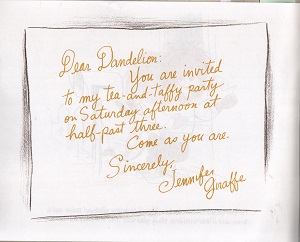 Dear Dandelion:
You are invited
to my tea-and-taffy party
on Saturday afternoon at
half-past three.
Come as you are.
Sincerely,
Jennifer
Giraffe